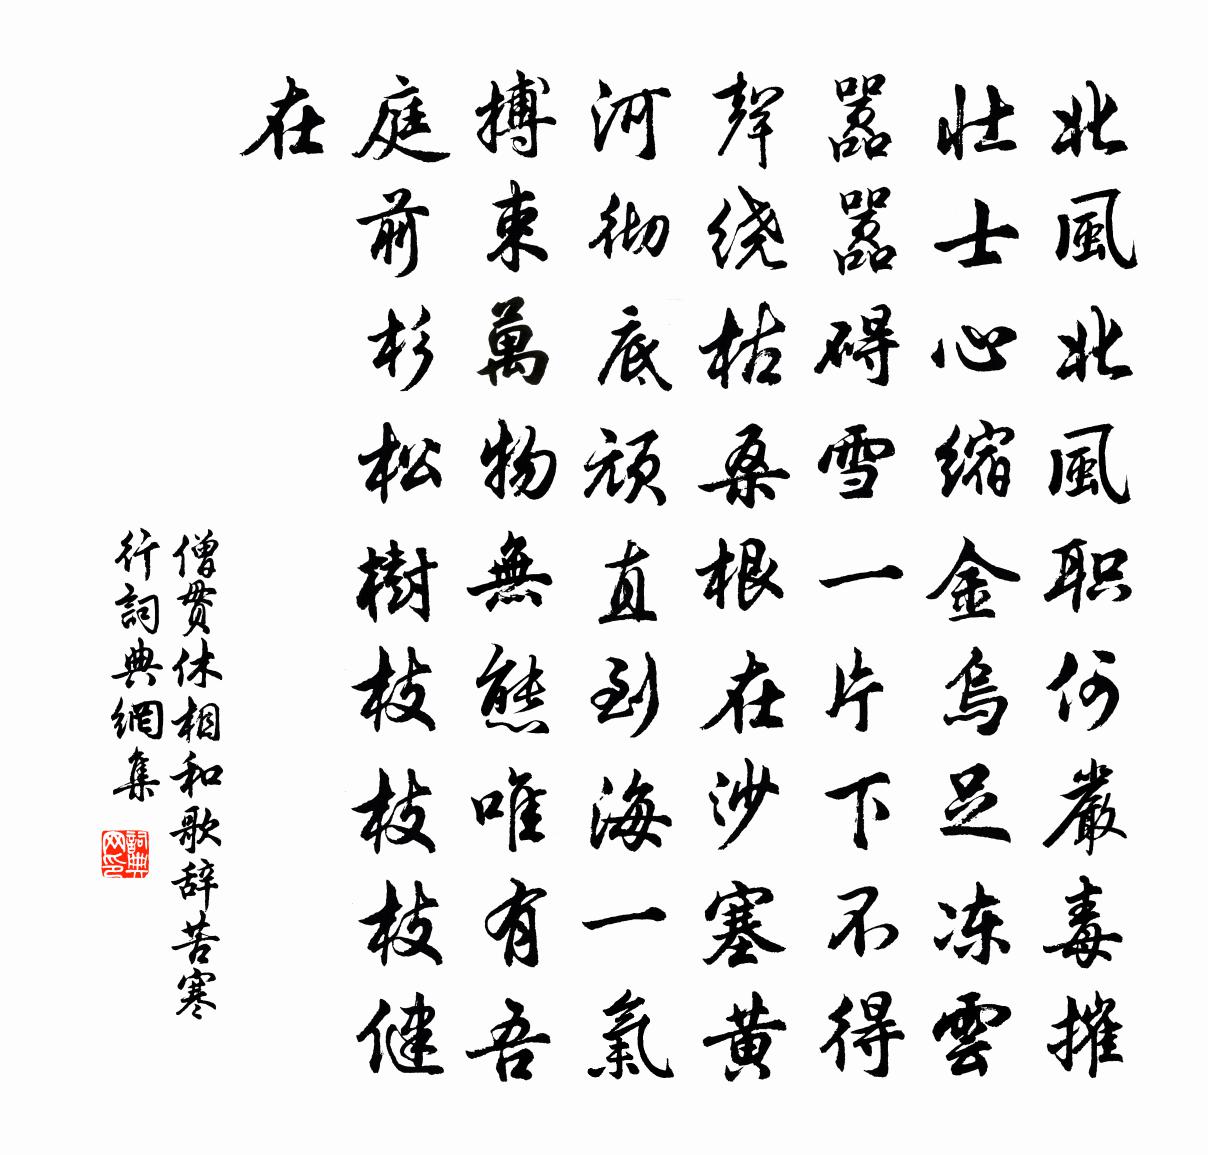 北風北風职何嚴毒摧
壮士心缩金烏足冻雲
嚣嚣碍雪一片下不得
聲绕枯桑根在沙塞黄
河彻底頑直到海一氣
搏束萬物無態唯有吾
庭前杉松樹枝枝枝健
在
僧贯休相和歌辞苦寒
行詞典網集
詞典
网印